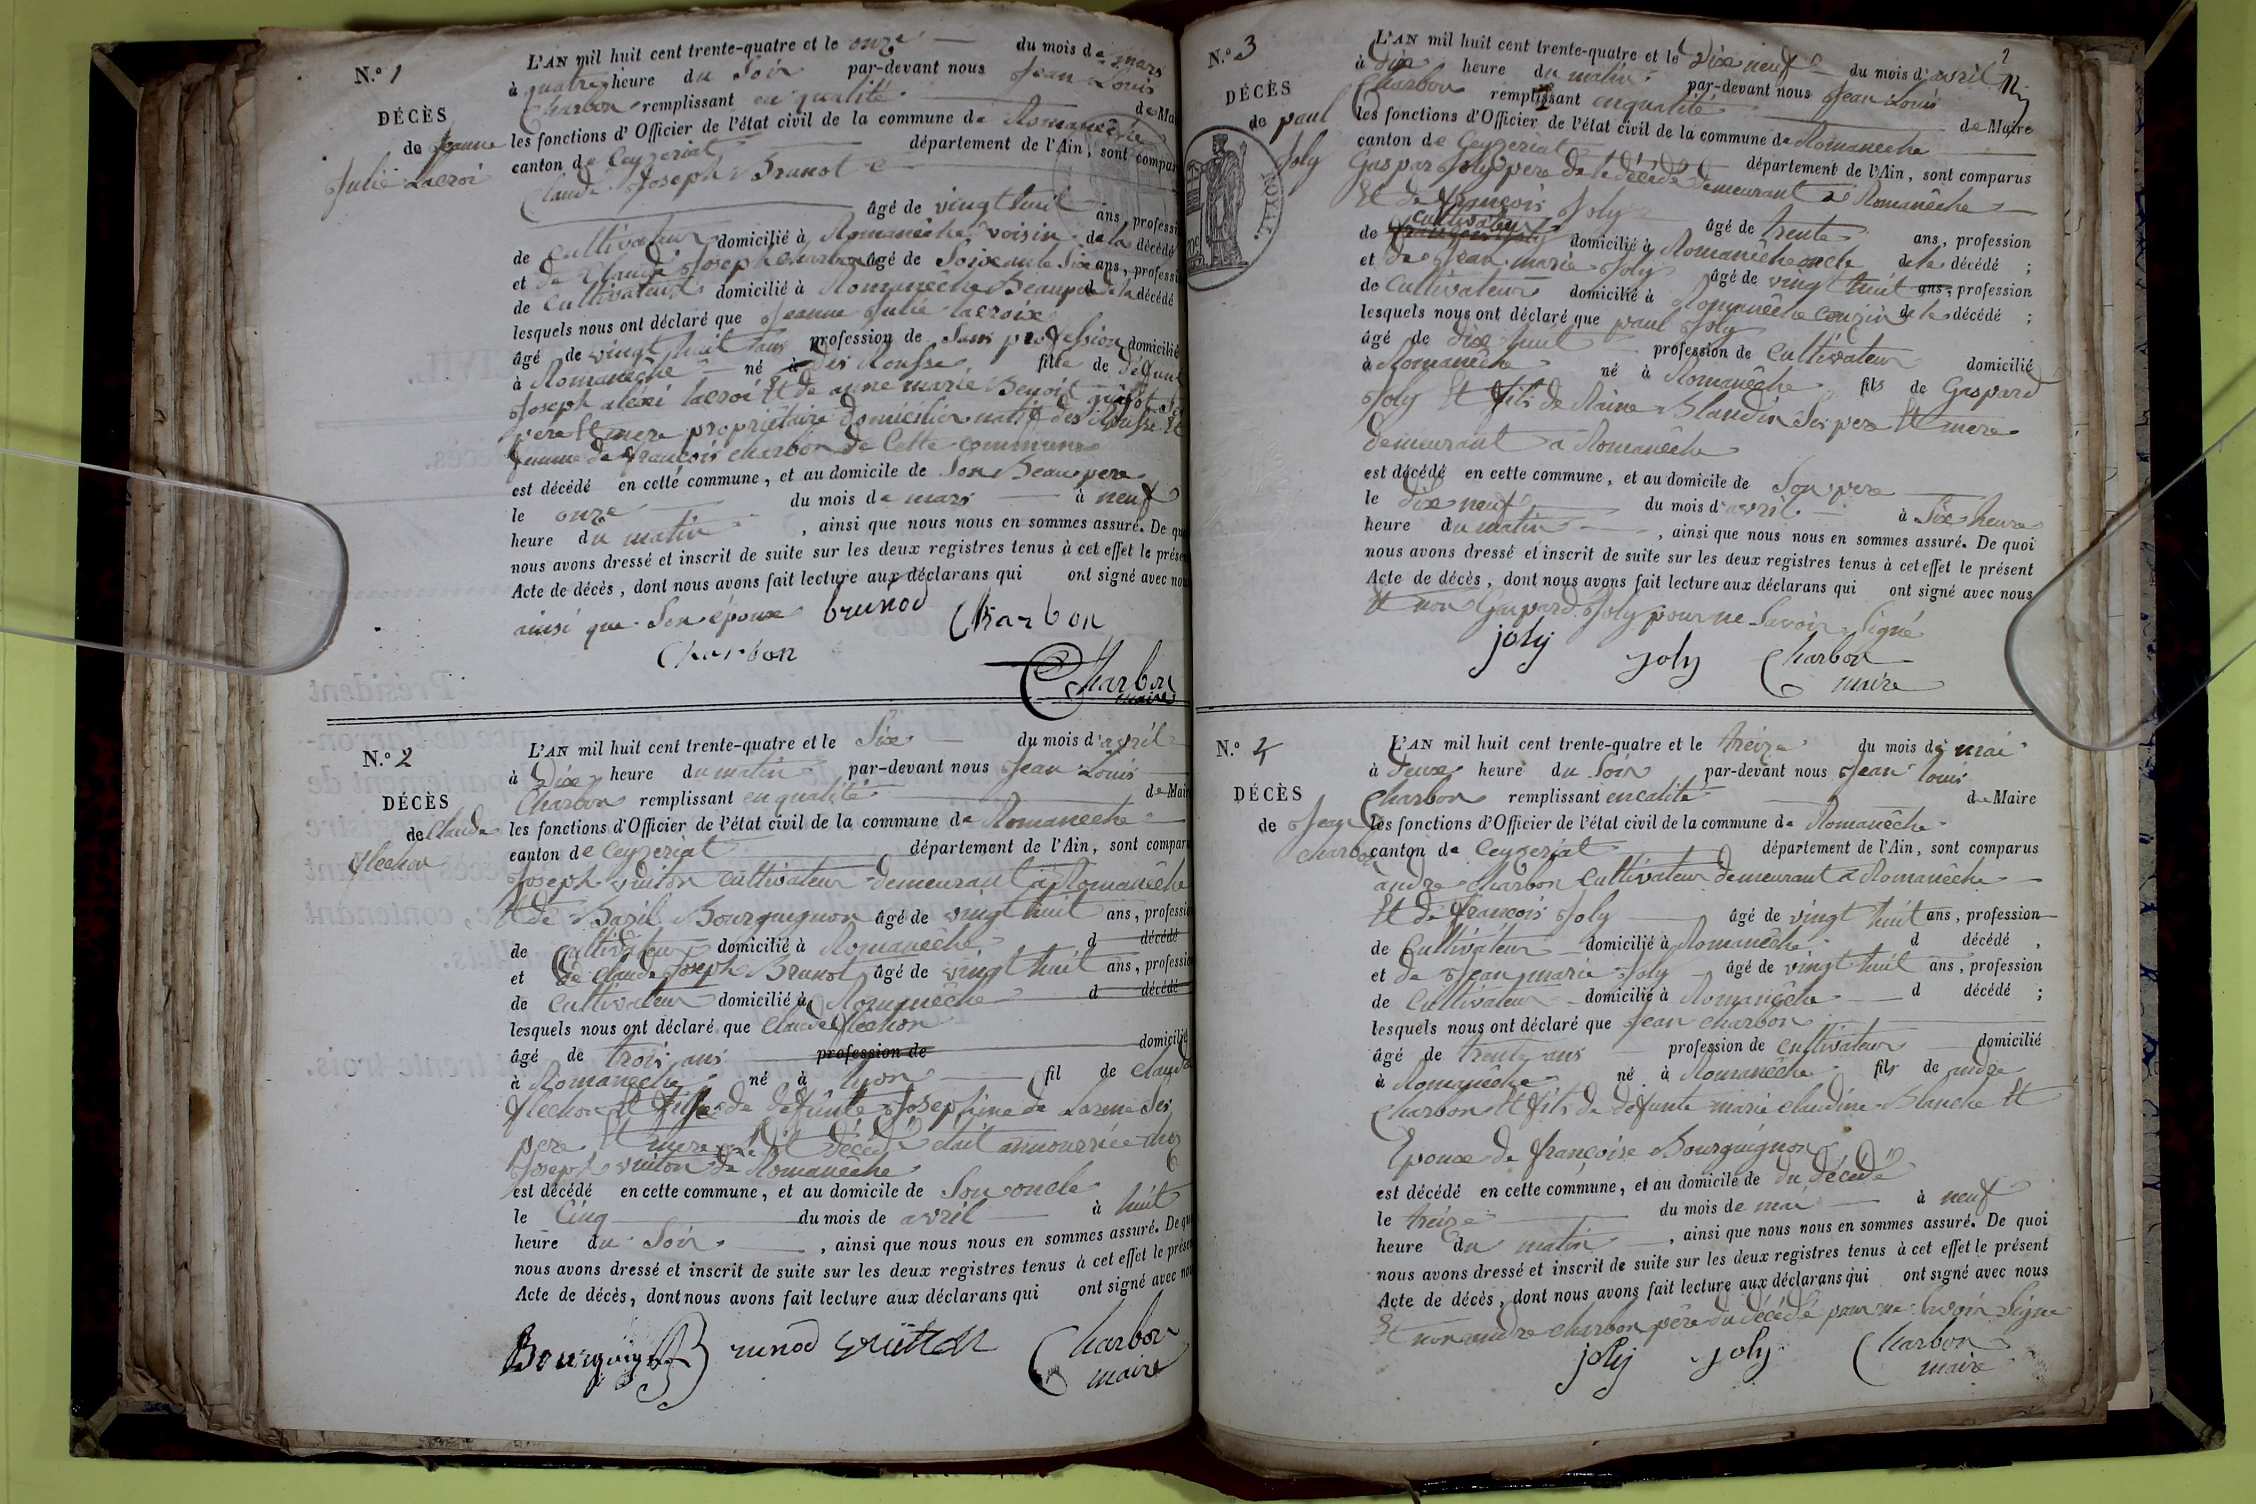 N.º 1
DÉCÈS
de Jeanne
Julie Lacroi
L'AN mil huit cent trente-quatre et le onze du mois de mars
à quatre heure du Soir par-devant nous Jean Louis
Charbon remplissant en qualité de Mai
les fonctions d'Officier de l'état civil de la commune de Romanêche
canton de Ceyzeriat département de l'Ain, sont compar
Claude Joseph Brunot
âgé de vingt huit ans, professi
de Cultivateur domicilié à Romanêche voisin de la décédé
et de Claude Joseph charbon âgé de Soixante Six ans, professi
de Cultivateur domicilié à Romanêche Beaupere de la décédé
lesquels nous ont déclaré que Jeanne Julie lacroix
âgé de vingt huit ans profession de Sans profession domicilié
à Romanêche né à des Rousse fille de défunt
Joseph alexi lacroi Et de anne marie Benoit
pere Et mere propriétaire domicilier des Rousse Et
femme de francois charbon de Cette commune
est décédé en cette commune, et au domicile de Son Beau pere
le onze du mois de mars à neuf
heure du matin, ainsi que nous nous en sommes assuré. De qu
nous avons dressé et inscrit de suite sur les deux registres tenus à cet effet le prése
Acte de décès, dont nous avons fait lecture aux déclarans qui ont signé avec nou
ainsi que Son époux brunod Charbon
Charbon
Charbon
maire
N.º 2
DÉCÈS
de Claude
flechon
L'AN mil huit cent trente-quatre et le Six du mois d'avril
à Dix heure du matin par-devant nous Jean Louis
Charbon remplissant en qualité de Mair
les fonctions d'Officier de l'état civil de la commune de Romanêche
canton de Ceyzeriat département de l'Ain, sont compar
Joseph vuiton cultivateur demeurant à Romanêche
Et de Basil Bourguignon âgé de vingt huit ans, professi
de Cultivateur domicilié à Romanêche d décédé
et de Claude Joseph Brunot âgé de vingt huit ans, professi
de Cultivateur domicilié à Romanêche d décédé
lesquels nous ont déclaré que Claude flechon
âgé de trois ans profession de domicilié
à Romanêche né à lyon fil de claude
flechon Et fils de défunte Josephine de Larme Ses
pere Et mere Le dit décédé était annourriée chez
Joseph vuiton de Romanêche
est décédé en cette commune, et au domicile de Son oncle
le Cinq du mois de avril à huit
heure du Soir, ainsi que nous nous en sommes assuré. De qu
nous avons dressé et inscrit de suite sur les deux registres tenus à cet effet le prése
Acte de décès, dont nous avons fait lecture aux déclarans qui ont signé avec nou
Bourguignon Brunod vuitton Charbon
maire
2
N.º 3
DÉCÈS
de paul
Joly
L'AN mil huit cent trente-quatre et le Dix neuf du mois d'avril
à Dix heure du matin par-devant nous Jean Louis
Charbon remplissant enqualité de Maire
les fonctions d'Officier de l'état civil de la commune de Romanêche
canton de Ceyzeriat département de l'Ain, sont comparus
Gaspar Joly pere de le décédé demeurant à Romanêche
Et de francois Joly âgé de trente ans, profession
de cultivateur domicilié à Romanêche oncle de le décédé ;
et de Jean marie Joly âgé de vingt huit ans, profession
de Cultivateur domicilié à Romanêche couzin de le décédé ;
lesquels nous ont déclaré que paul Joly
âgé de dix huit profession de Cultivateur domicilié
à Romanêche né à Romanêche fils de Gaspard
Joly Et fils de Raine Blandin Ses pere Et mere
demeurant à Romanêche
est décédé en cette commune, et au domicile de Son pere
le dix neuf du mois d'avril à Six heure
heure du matin, ainsi que nous nous en sommes assuré. De quoi
nous avons dressé et inscrit de suite sur les deux registres tenus à cet effet le présent
Acte de décès, dont nous avons fait lecture aux déclarans qui ont signé avec nous
Et non Gaspard Joly pour ne Savoir Signé
joly joly Charbon
maire
N.º 4
DÉCÈS
de Jean
Charbon
L'AN mil huit cent trente-quatre et le treize du mois de mai
à deux heure du Soir par-devant nous Jean louis
Charbon remplissant encalité de Maire
les fonctions d'Officier de l'état civil de la commune de Romanêche
canton de Ceyzeriat département de l'Ain, sont comparus
andre Charbon Cultivateur demeurant à Romanêche
Et de françois Joly âgé de vingt huit ans, profession
de Cultivateur domicilié à Romanêche d décédé ,
et de Jean marie Joly âgé de vingt huit ans, profession
de Cultivateur domicilié à Romanêche d décédé ;
lesquels nous ont déclaré que Jean charbon
âgé de trente ans profession de cultivateur domicilié
à Romanêche né à Romanêche fils de andre
Charbon Et fils de défunte marie claudine Blanche Et
Epoux de françoise Bourguignon
est décédé en cette commune, et au domicile de du décédé
le treize du mois de mai à neuf
heure du matin, ainsi que nous nous en sommes assuré. De quoi
nous avons dressé et inscrit de suite sur les deux registres tenus à cet effet le présent
Acte de décès, dont nous avons fait lecture aux déclarans qui ont signé avec nous
Et non andre charbon père du décédé pour ne Savoir Signe
joly joly Charbon
maire